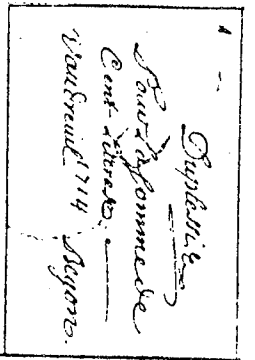 Duplessis
Pour la somme de
Cent Livres.
Vaudreuil 1714 Begon.